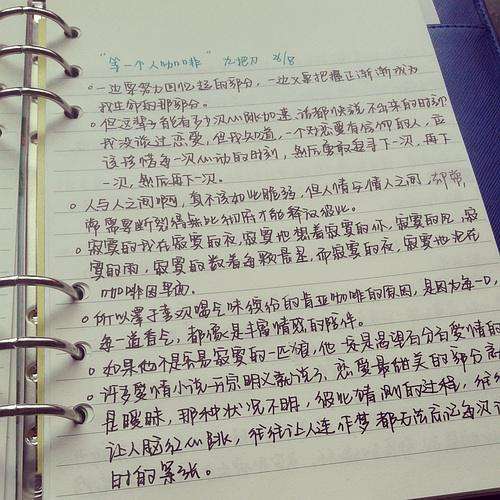 "等一个人咖啡" 九把刀 21/8
。一边要努力回忆起的部分，一边又要把握正渐渐成为
我生命的那部分。
。但这辈子能有多少次心跳加速，话都快说不出来的时刻
我没谈过恋爱，但我知道，一个对恋爱有信仰的人，应
该珍惜每一次心动的时刻，然后勇敢追寻下一次，再下
一次，然后再下一次。
。人与人之间啊，真不该如此脆弱，但人情与情人之间，却常
常需要断裂得无比彻底才能释放彼此。
。寂寞的我在寂寞的夜，寂寞地想着寂寞的你，寂寞的风，寂
寞的雨，寂寞的数着每颗星星，而寂寞的夜，寂寞地泡在
咖啡因里面。
。所以属于喝气味缤纷的肯亚咖啡的原因，是因为每一口，
每一道香气，都像是丰富情感的陪伴。
。如果他不是容易寂寞的一匹狼，他一定是渴望百分百爱情的
。许多爱情小说开宗明义就说了，恋爱最甜美的部分
是暧昧，那种状况不明，彼此猜测的过程，往往
让人脸红心跳，往往让人连作梦都无法忘记每次
时的紧张。